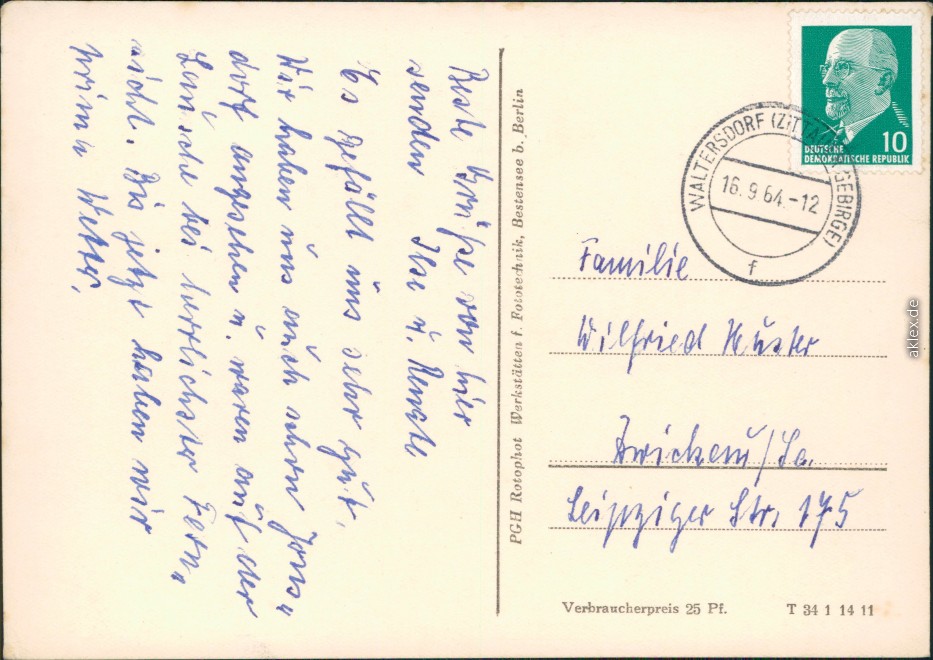 Beste Grüße von hier
senden Ilse u. Renate
Es gefällt uns sehr gut.
Wir haben uns auch schon Jons„
dorf angesehen u. waren auf der
Lausche bei herrlichster Fern„
sicht. Bis jetzt haben wir
prima Wetter.
PGH Rotophot Werkstätten f. Fototechnik, Bestensee b. Berlin
10
DEUTSCHE
DEMOKRATISCHE REPUBLIK
WALTERSDORF (ZITTAUER GEBIRGE)
16.9.64.-12
f
Familie
Wilfried Huster
Zwickau/Sa.
Leipziger Str. 175
Verbraucherpreis 25 Pf.
T 34 1 14 11
aklex.de